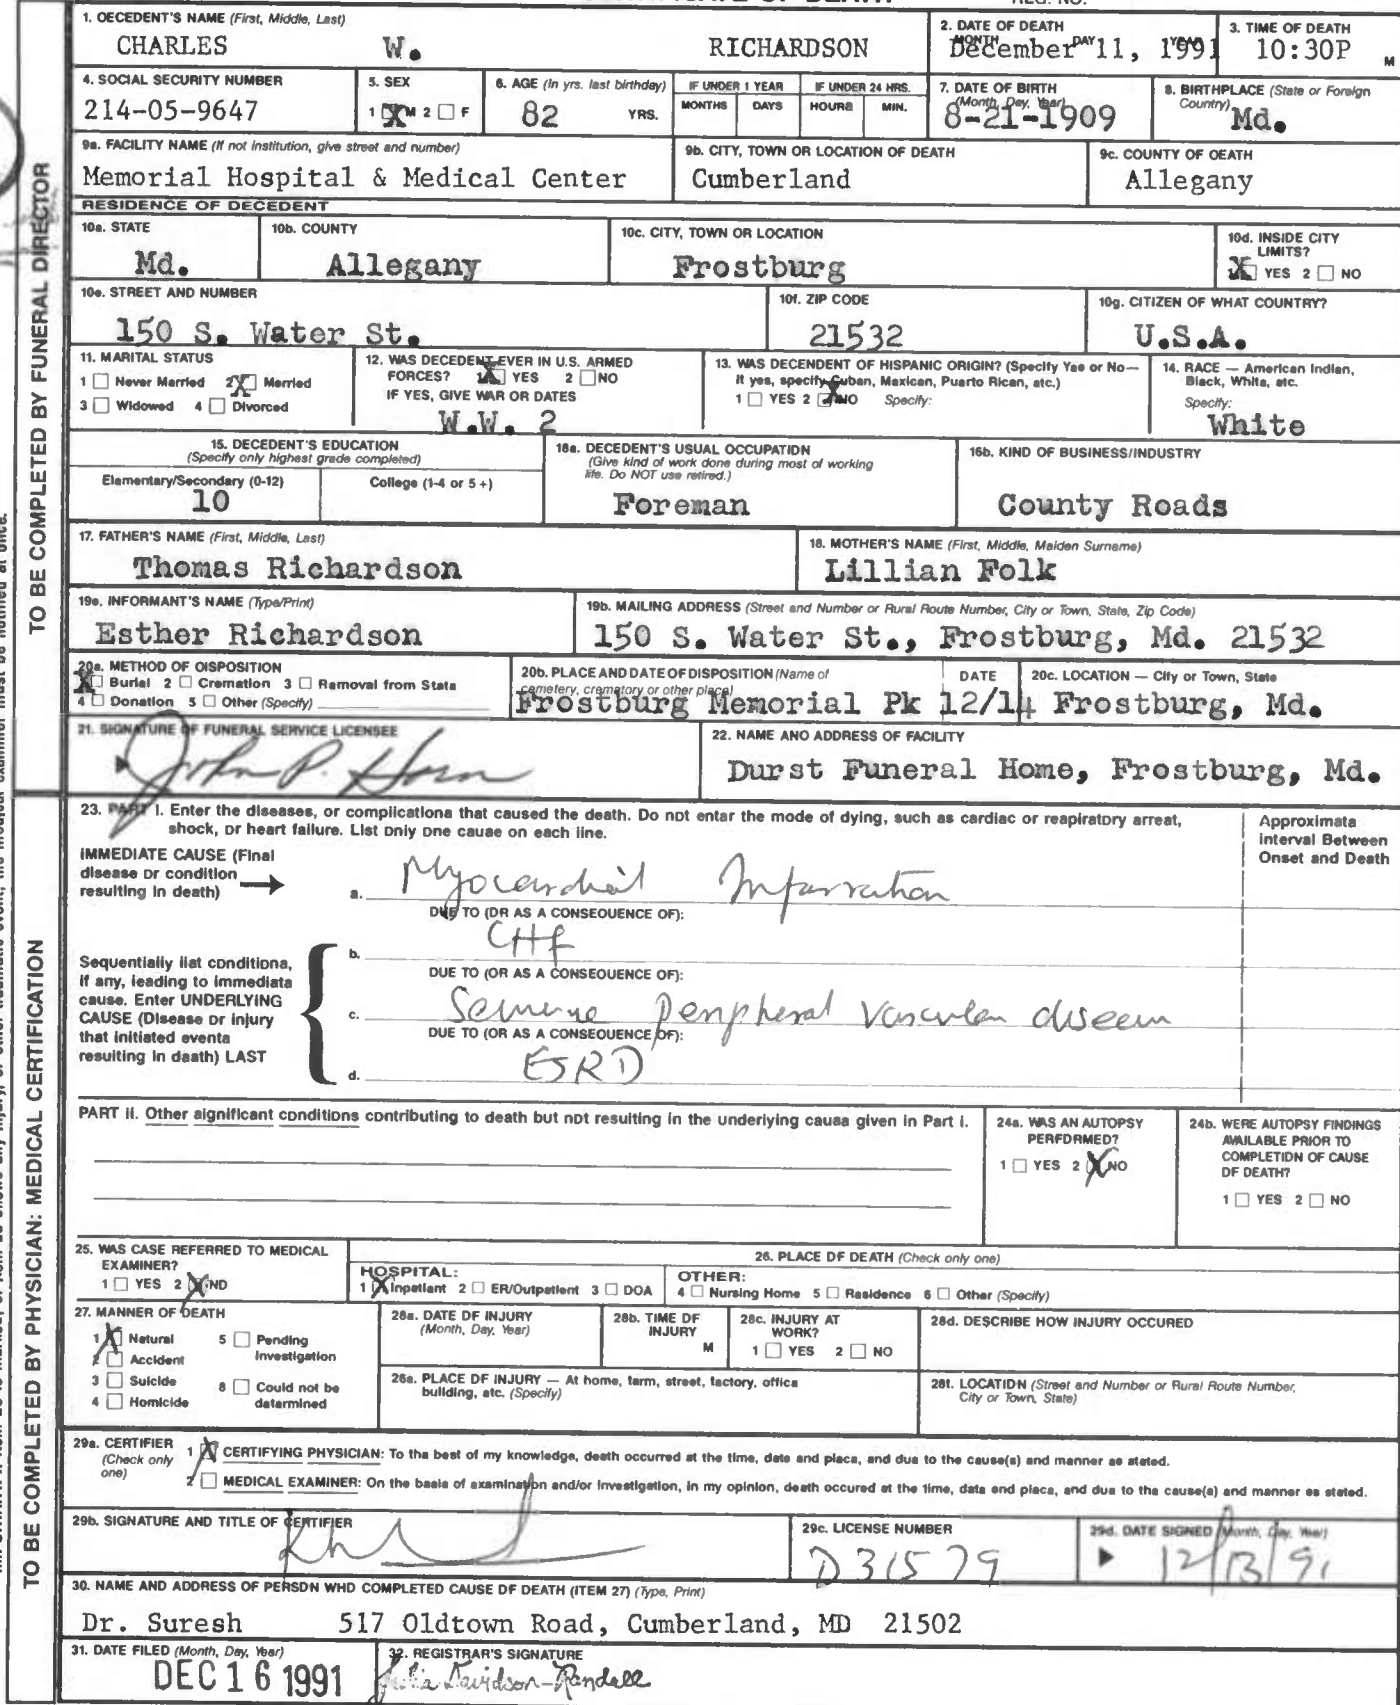 1. DECEDENT'S NAME (First, Middle, Last)
CHARLES W. RICHARDSON
2. DATE OF DEATH
MONTH DAY YEAR
December 11, 1991
3. TIME OF DEATH
10:30P M
4. SOCIAL SECURITY NUMBER
214-05-9647
5. SEX
1 X M 2 ☐ F
6. AGE (In yrs. last birthday)
82 YRS.
IF UNDER 1 YEAR
MONTHS DAYS
IF UNDER 24 HRS.
HOURS MIN.
7. DATE OF BIRTH
(Month, Day, Year)
8-21-1909
8. BIRTHPLACE (State or Foreign
Country)
Md.
9a. FACILITY NAME (If not institution, give street and number)
Memorial Hospital & Medical Center
9b. CITY, TOWN OR LOCATION OF DEATH
Cumberland
9c. COUNTY OF DEATH
Allegany
RESIDENCE OF DECEDENT
10a. STATE
Md.
10b. COUNTY
Allegany
10c. CITY, TOWN OR LOCATION
Frostburg
10d. INSIDE CITY
LIMITS?
X YES 2 ☐ NO
10e. STREET AND NUMBER
150 S. Water St.
10f. ZIP CODE
21532
10g. CITIZEN OF WHAT COUNTRY?
U.S.A.
11. MARITAL STATUS
1 ☐ Never Married 2 X Married
3 ☐ Widowed 4 ☐ Divorced
12. WAS DECEDENT EVER IN U.S. ARMED
FORCES? 1 X YES 2 ☐ NO
IF YES, GIVE WAR OR DATES
W.W. 2
13. WAS DECENDENT OF HISPANIC ORIGIN? (Specify Yes or No—
If yes, specify Cuban, Mexican, Puerto Rican, etc.)
1 ☐ YES 2 X NO Specify:
14. RACE — American Indian,
Black, White, etc.
Specify:
White
15. DECEDENT'S EDUCATION
(Specify only highest grade completed)
Elementary/Secondary (0-12) College (1-4 or 5 +)
10
16a. DECEDENT'S USUAL OCCUPATION
(Give kind of work done during most of working
life. Do NOT use retired.)
Foreman
16b. KIND OF BUSINESS/INDUSTRY
County Roads
17. FATHER'S NAME (First, Middle, Last)
Thomas Richardson
18. MOTHER'S NAME (First, Middle, Maiden Surname)
Lillian Folk
19a. INFORMANT'S NAME (Type/Print)
Esther Richardson
19b. MAILING ADDRESS (Street and Number or Rural Route Number, City or Town, State, Zip Code)
150 S. Water St., Frostburg, Md. 21532
20a. METHOD OF DISPOSITION
X Burial 2 ☐ Cremation 3 ☐ Removal from State
4 ☐ Donation 5 ☐ Other (Specify)
20b. PLACE AND DATE OF DISPOSITION (Name of
cemetery, crematory or other place)
DATE
Frostburg Memorial Pk 12/14
20c. LOCATION — City or Town, State
Frostburg, Md.
21. SIGNATURE OF FUNERAL SERVICE LICENSEE
John P. Horn
22. NAME AND ADDRESS OF FACILITY
Durst Funeral Home, Frostburg, Md.
TO BE COMPLETED BY FUNERAL DIRECTOR
23. PART I. Enter the diseases, or complications that caused the death. Do not enter the mode of dying, such as cardiac or respiratory arrest,
shock, or heart failure. List only one cause on each line.
Approximate
Interval Between
Onset and Death
IMMEDIATE CAUSE (Final
disease or condition
resulting in death)
a. Myocardial Infarction
DUE TO (OR AS A CONSEQUENCE OF):
b. CHF
DUE TO (OR AS A CONSEQUENCE OF):
Sequentially list conditions,
if any, leading to immediate
cause. Enter UNDERLYING
CAUSE (Disease or injury
that initiated events
resulting in death) LAST
c. Severe Peripheral Vascular disease
DUE TO (OR AS A CONSEQUENCE OF):
d. ESRD
PART II. Other significant conditions contributing to death but not resulting in the underlying cause given in Part I.
24a. WAS AN AUTOPSY
PERFORMED?
1 ☐ YES 2 X NO
24b. WERE AUTOPSY FINDINGS
AVAILABLE PRIOR TO
COMPLETION OF CAUSE
OF DEATH?
1 ☐ YES 2 ☐ NO
25. WAS CASE REFERRED TO MEDICAL
EXAMINER?
1 ☐ YES 2 X NO
26. PLACE OF DEATH (Check only one)
HOSPITAL:
1 X Inpatient 2 ☐ ER/Outpatient 3 ☐ DOA
OTHER:
4 ☐ Nursing Home 5 ☐ Residence 6 ☐ Other (Specify)
27. MANNER OF DEATH
1 X Natural 5 ☐ Pending
Investigation
2 ☐ Accident
3 ☐ Suicide 6 ☐ Could not be
determined
4 ☐ Homicide
28a. DATE OF INJURY
(Month, Day, Year)
28b. TIME OF
INJURY
M
28c. INJURY AT
WORK?
1 ☐ YES 2 ☐ NO
28d. DESCRIBE HOW INJURY OCCURED
28e. PLACE OF INJURY — At home, farm, street, factory, office
building, etc. (Specify)
28f. LOCATION (Street and Number or Rural Route Number,
City or Town, State)
29a. CERTIFIER
(Check only
one)
1 X CERTIFYING PHYSICIAN: To the best of my knowledge, death occurred at the time, date and place, and due to the cause(s) and manner as stated.
2 ☐ MEDICAL EXAMINER: On the basis of examination and/or investigation, in my opinion, death occured at the time, date and place, and due to the cause(s) and manner as stated.
29b. SIGNATURE AND TITLE OF CERTIFIER
29c. LICENSE NUMBER
D31579
29d. DATE SIGNED (Month, Day, Year)
12/13/91
30. NAME AND ADDRESS OF PERSON WHO COMPLETED CAUSE OF DEATH (ITEM 27) (Type, Print)
Dr. Suresh 517 Oldtown Road, Cumberland, MD 21502
31. DATE FILED (Month, Day, Year)
DEC 16 1991
32. REGISTRAR'S SIGNATURE
Julia Davidson-Randell
TO BE COMPLETED BY PHYSICIAN: MEDICAL CERTIFICATION